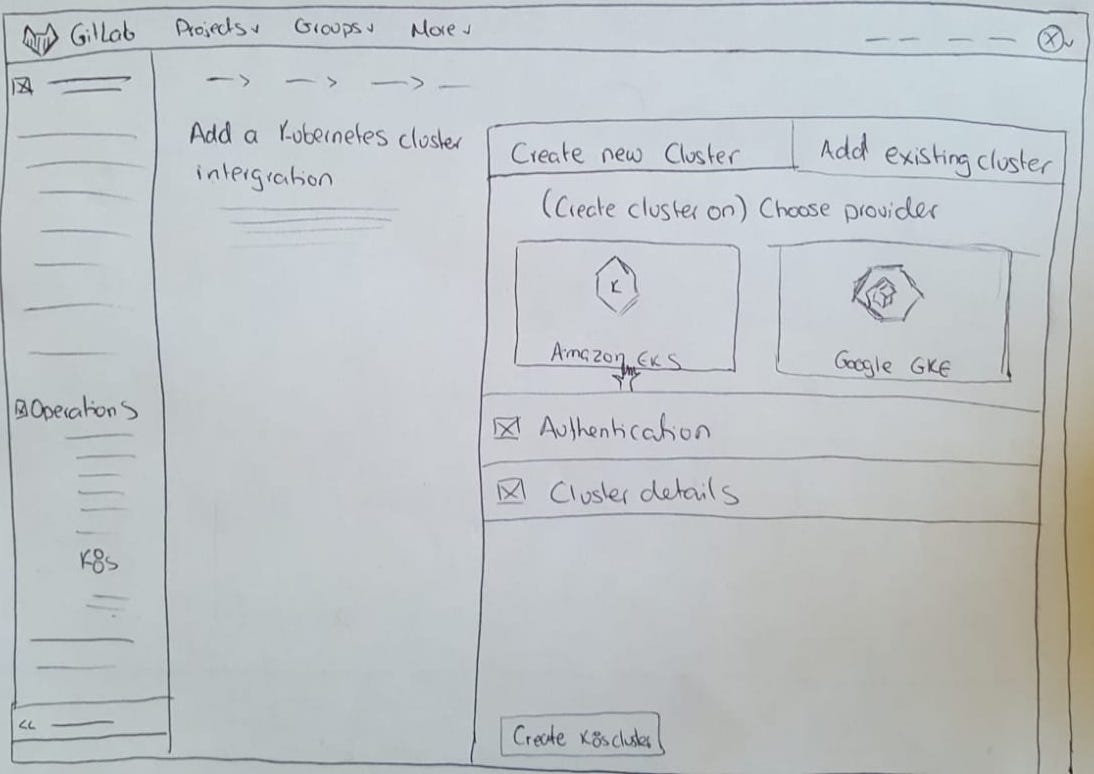 GitLab Projects Groups More
Add a Kubernetes cluster
intergration
Create new Cluster
Add existing cluster
(Create cluster on) Choose provider
K
Amazon EKS
Google GKE
Operations
Authentication
Cluster details
K8s
<<
Create K8s cluster